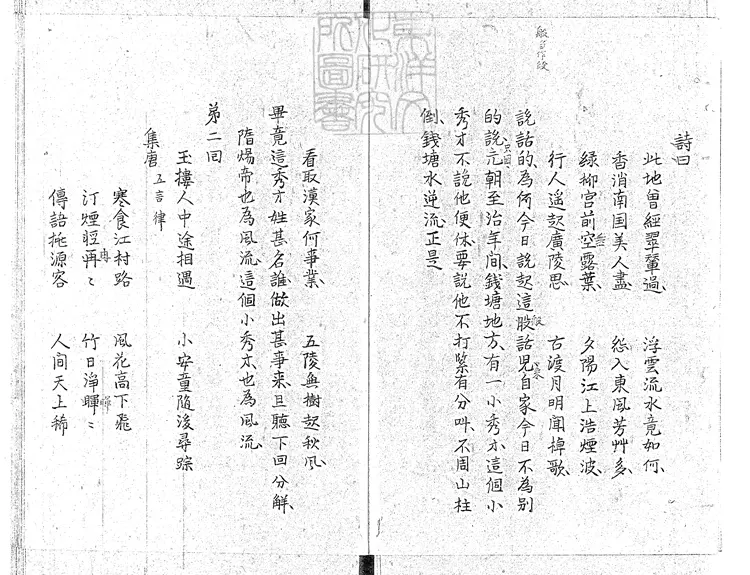 詩曰
此地曾經翠輦過、 浮雲流水竟如何、
香消南国美人盡、 怨入東風芳艸多、
緑柳宮前空露葉、 夕陽江上浩煙波、
行人遥起廣陵思 古渡月明聞棹歌、
說話的、為何今日說起這股話児、自家今日不為别
的說、元朝至治年间、錢塘地方、有一小秀才、這個小
秀才不說他便休、要說他、不打緊、有分叫、不周山柱
倒、錢塘水逆流、正是、
看取漢家何事業、 五陵無樹起秋风、
畢竟這秀才姓甚名誰做出甚事来、且聽下回分觧、
隋煬帝也為風流、這個小秀才、也為风流、
第二囘
玉摟人中途相遇 小安童隨後尋踪
集唐 五言律
寒食江村路 風花高下飛
汀煙輕冉〻 竹日淨暉〻
傳語桃源客 人间天上稀